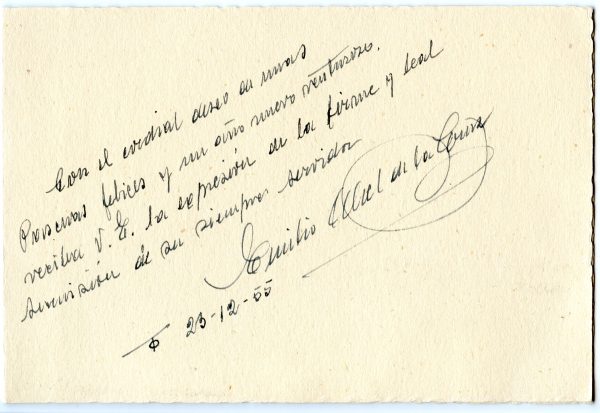 Con el cordial deseo de unas
Pascuas felices y un año nuevo venturoso.
reciba V. E. la expresión de la firme y leal
sumisión de su siempre servidor
Emilio de la Cruz
23-12-55